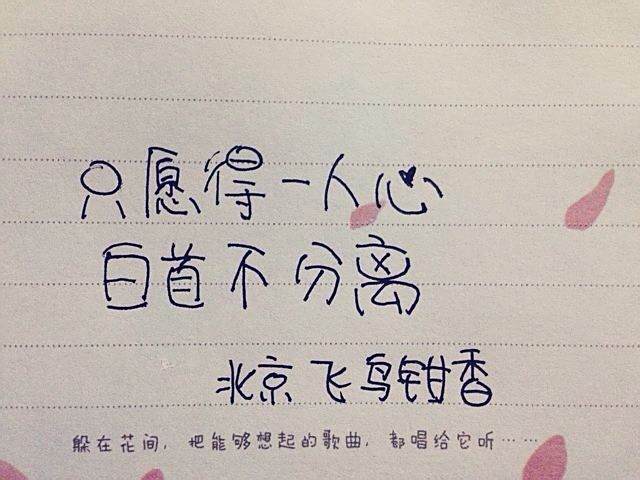 只愿得一人心
白首不分离
北京飞鸟钳香
躲在花间，把能够想起的歌曲，都唱给它听……